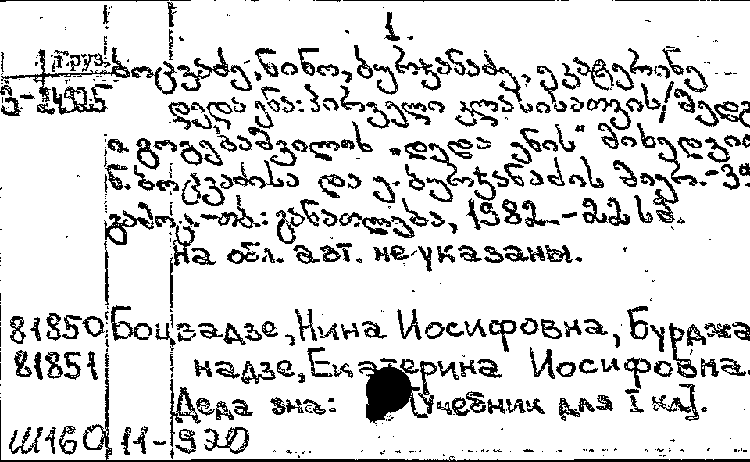 1.
Груз. ბოცვაძე, ნინო, ბურჯანაძე, ეკატერინე
3-24925 დედა ენა: პირველი კლასისათვის/შედგ
ი. გოგებაშვილის „დედა ენის“ მიხედვით
ნ. ბოცვაძისა და ე. ბურჯანაძის მიერ.-39
გამოც.-თბ.: განათლება, 1982.-22 სმ.
На обл. авт. не указаны.
81850 Боцвадзе, Нина Иосифовна, Бурджа
81851 надзе, Екатерина Иосифовна.
Деда эна: [Учебник для I кл].
Ш160.11-920